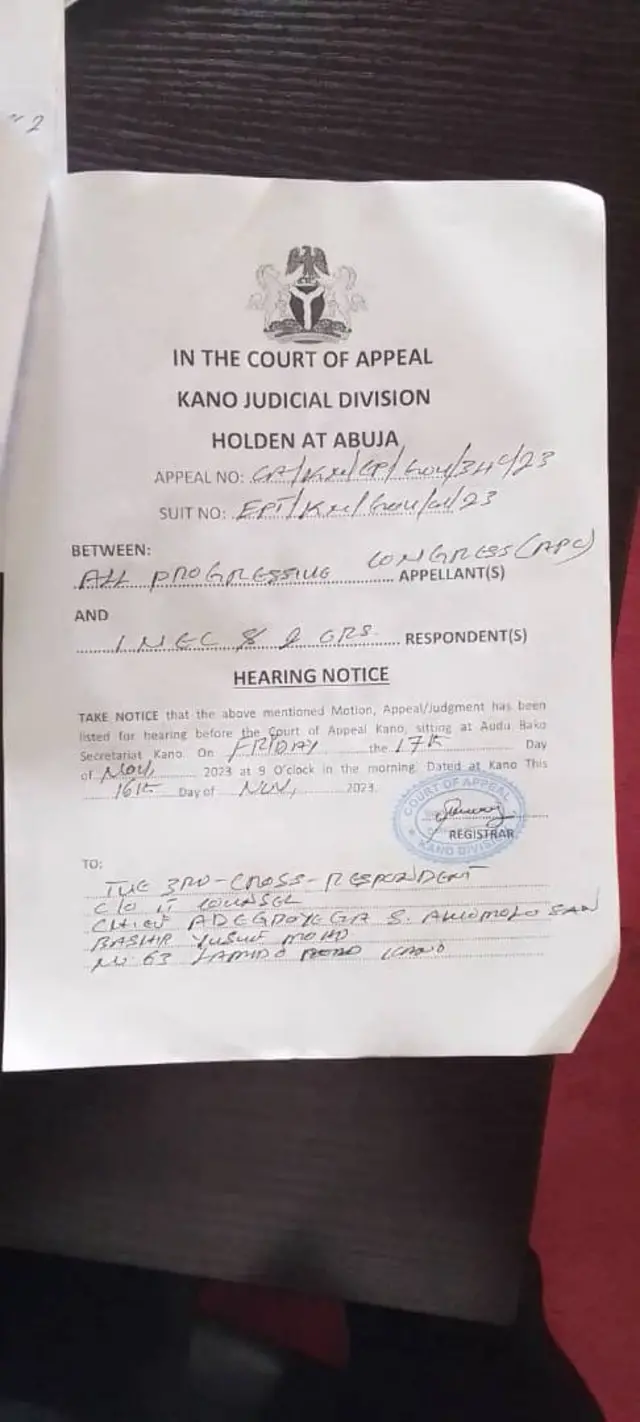 2
IN THE COURT OF APPEAL
KANO JUDICIAL DIVISION
HOLDEN AT ABUJA
APPEAL NO: CA/KN/EP/GOV/34C/23
SUIT NO: EPT/KN/GOV/01/23
BETWEEN:
ALL PROGRESSIVE CONGRESS (APC) APPELLANT(S)
AND
INEC & 2 ORS. RESPONDENT(S)
HEARING NOTICE
TAKE NOTICE that the above mentioned Motion, Appeal/Judgment has been
listed for hearing before the Court of Appeal Kano, sitting at Audu Bako
Secretariat Kano. On FRIDAY the 17th Day
of Nov, 2023 at 9 O'clock in the morning. Dated at Kano This
16th Day of NOV, 2023.
COURT OF APPEAL
REGISTRAR
KANO DIVISION
TO:
THE 3RD-CROSS-RESPONDENT
C/O IT COUNSEL
CHIEF ADEGBOYEGA S. AWOMOLO SAN
BASHIR YUSUF MOHD
No 63 ZAMIDO ROAD KANO